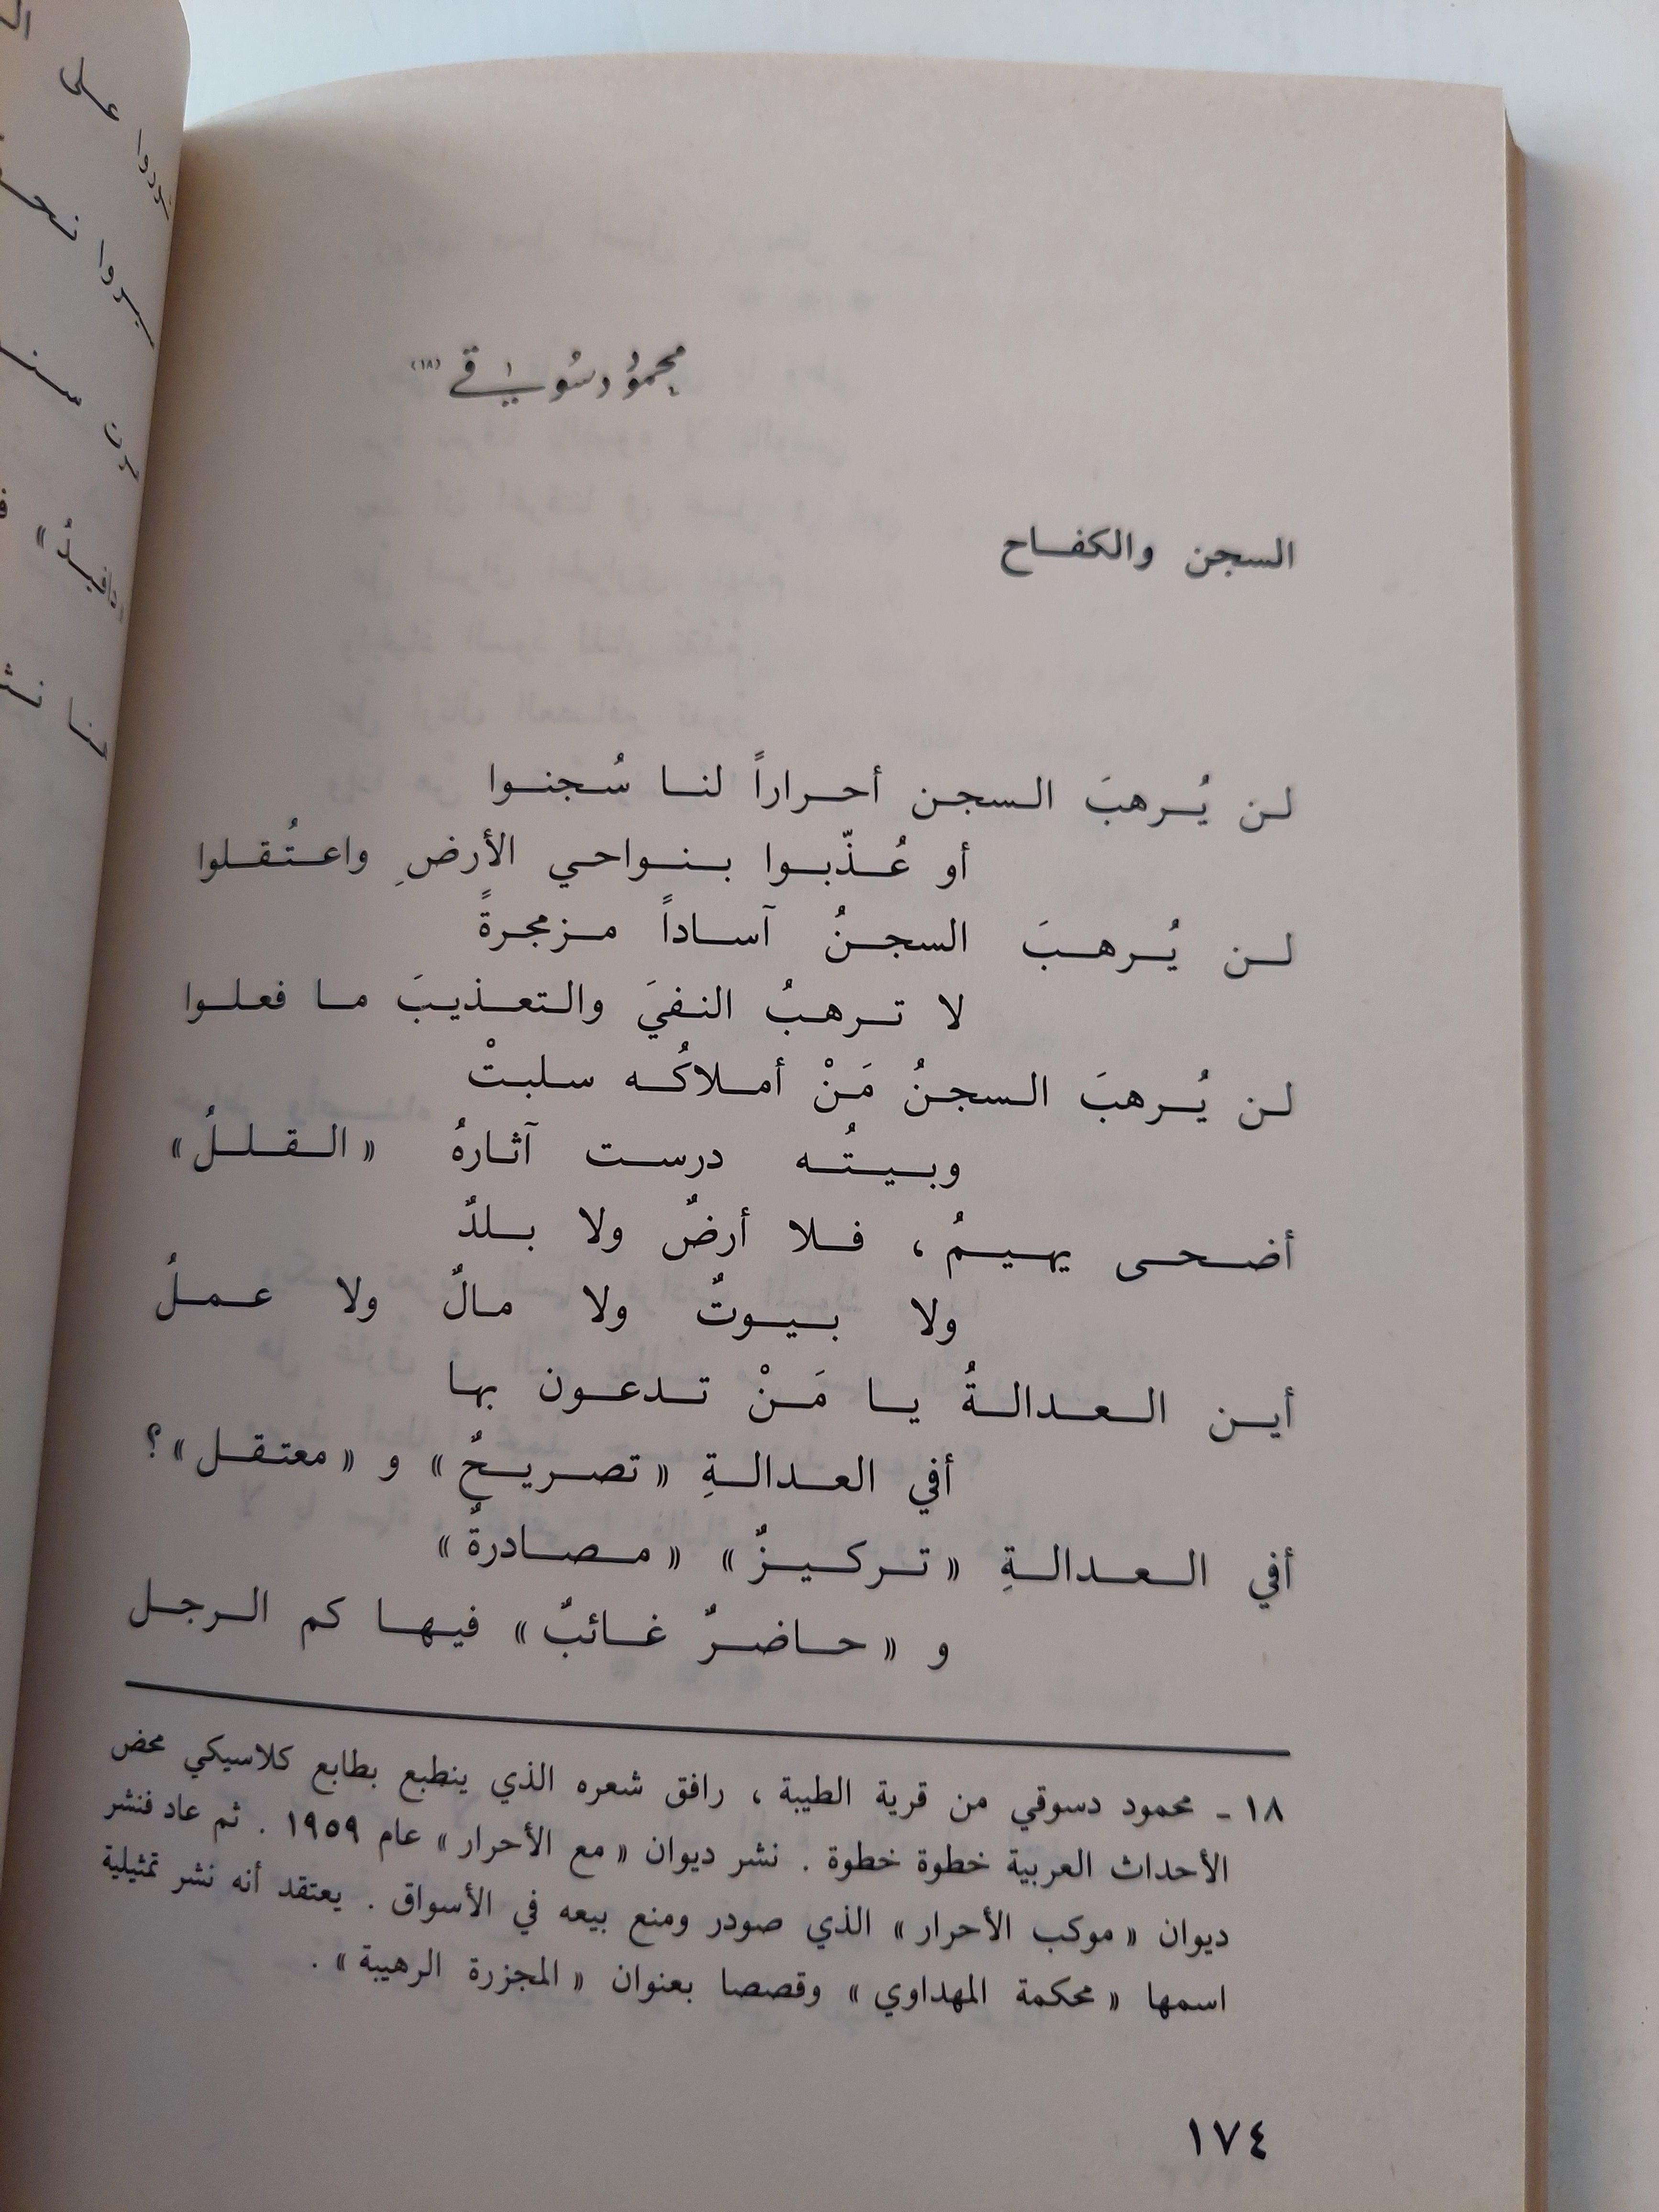 محمود دسوقي (١٨)
السجن والكفاح
لن يُرهبَ السجن أحراراً لنا سُجنوا
أو عُذّبوا بنواحي الأرضِ واعتُقلوا
لن يُرهبَ السجنُ آساداً مزمجرةً
لا ترهبُ النفيَ والتعذيبَ ما فعلوا
لن يُرهبَ السجنُ مَنْ أملاكُه سلبتْ
وبيتُه درست آثارهُ «القللُ»
أضحى يهيمُ ، فلا أرضٌ ولا بلدٌ
ولا بيوتٌ ولا مالٌ ولا عملُ
أين العدالةُ يا مَنْ تدعون بها
أفي العدالةِ «تصريحٌ» و «معتقل»؟
أفي العدالةِ «تركيزٌ» «مصادرةٌ»
و «حاضرٌ غائبٌ» فيها كم الرجل
١٨ - محمود دسوقي من قرية الطيبة ، رافق شعره الذي ينطبع بطابع كلاسيكي محض
الأحداث العربية خطوة خطوة . نشر ديوان «مع الأحرار» عام ١٩٥٩ . ثم عاد فنشر
ديوان «موكب الأحرار» الذي صودر ومنع بيعه في الأسواق . يعتقد أنه نشر تمثيلية
اسمها «محكمة المهداوي» وقصصا بعنوان «المجزرة الرهيبة» .
١٧٤